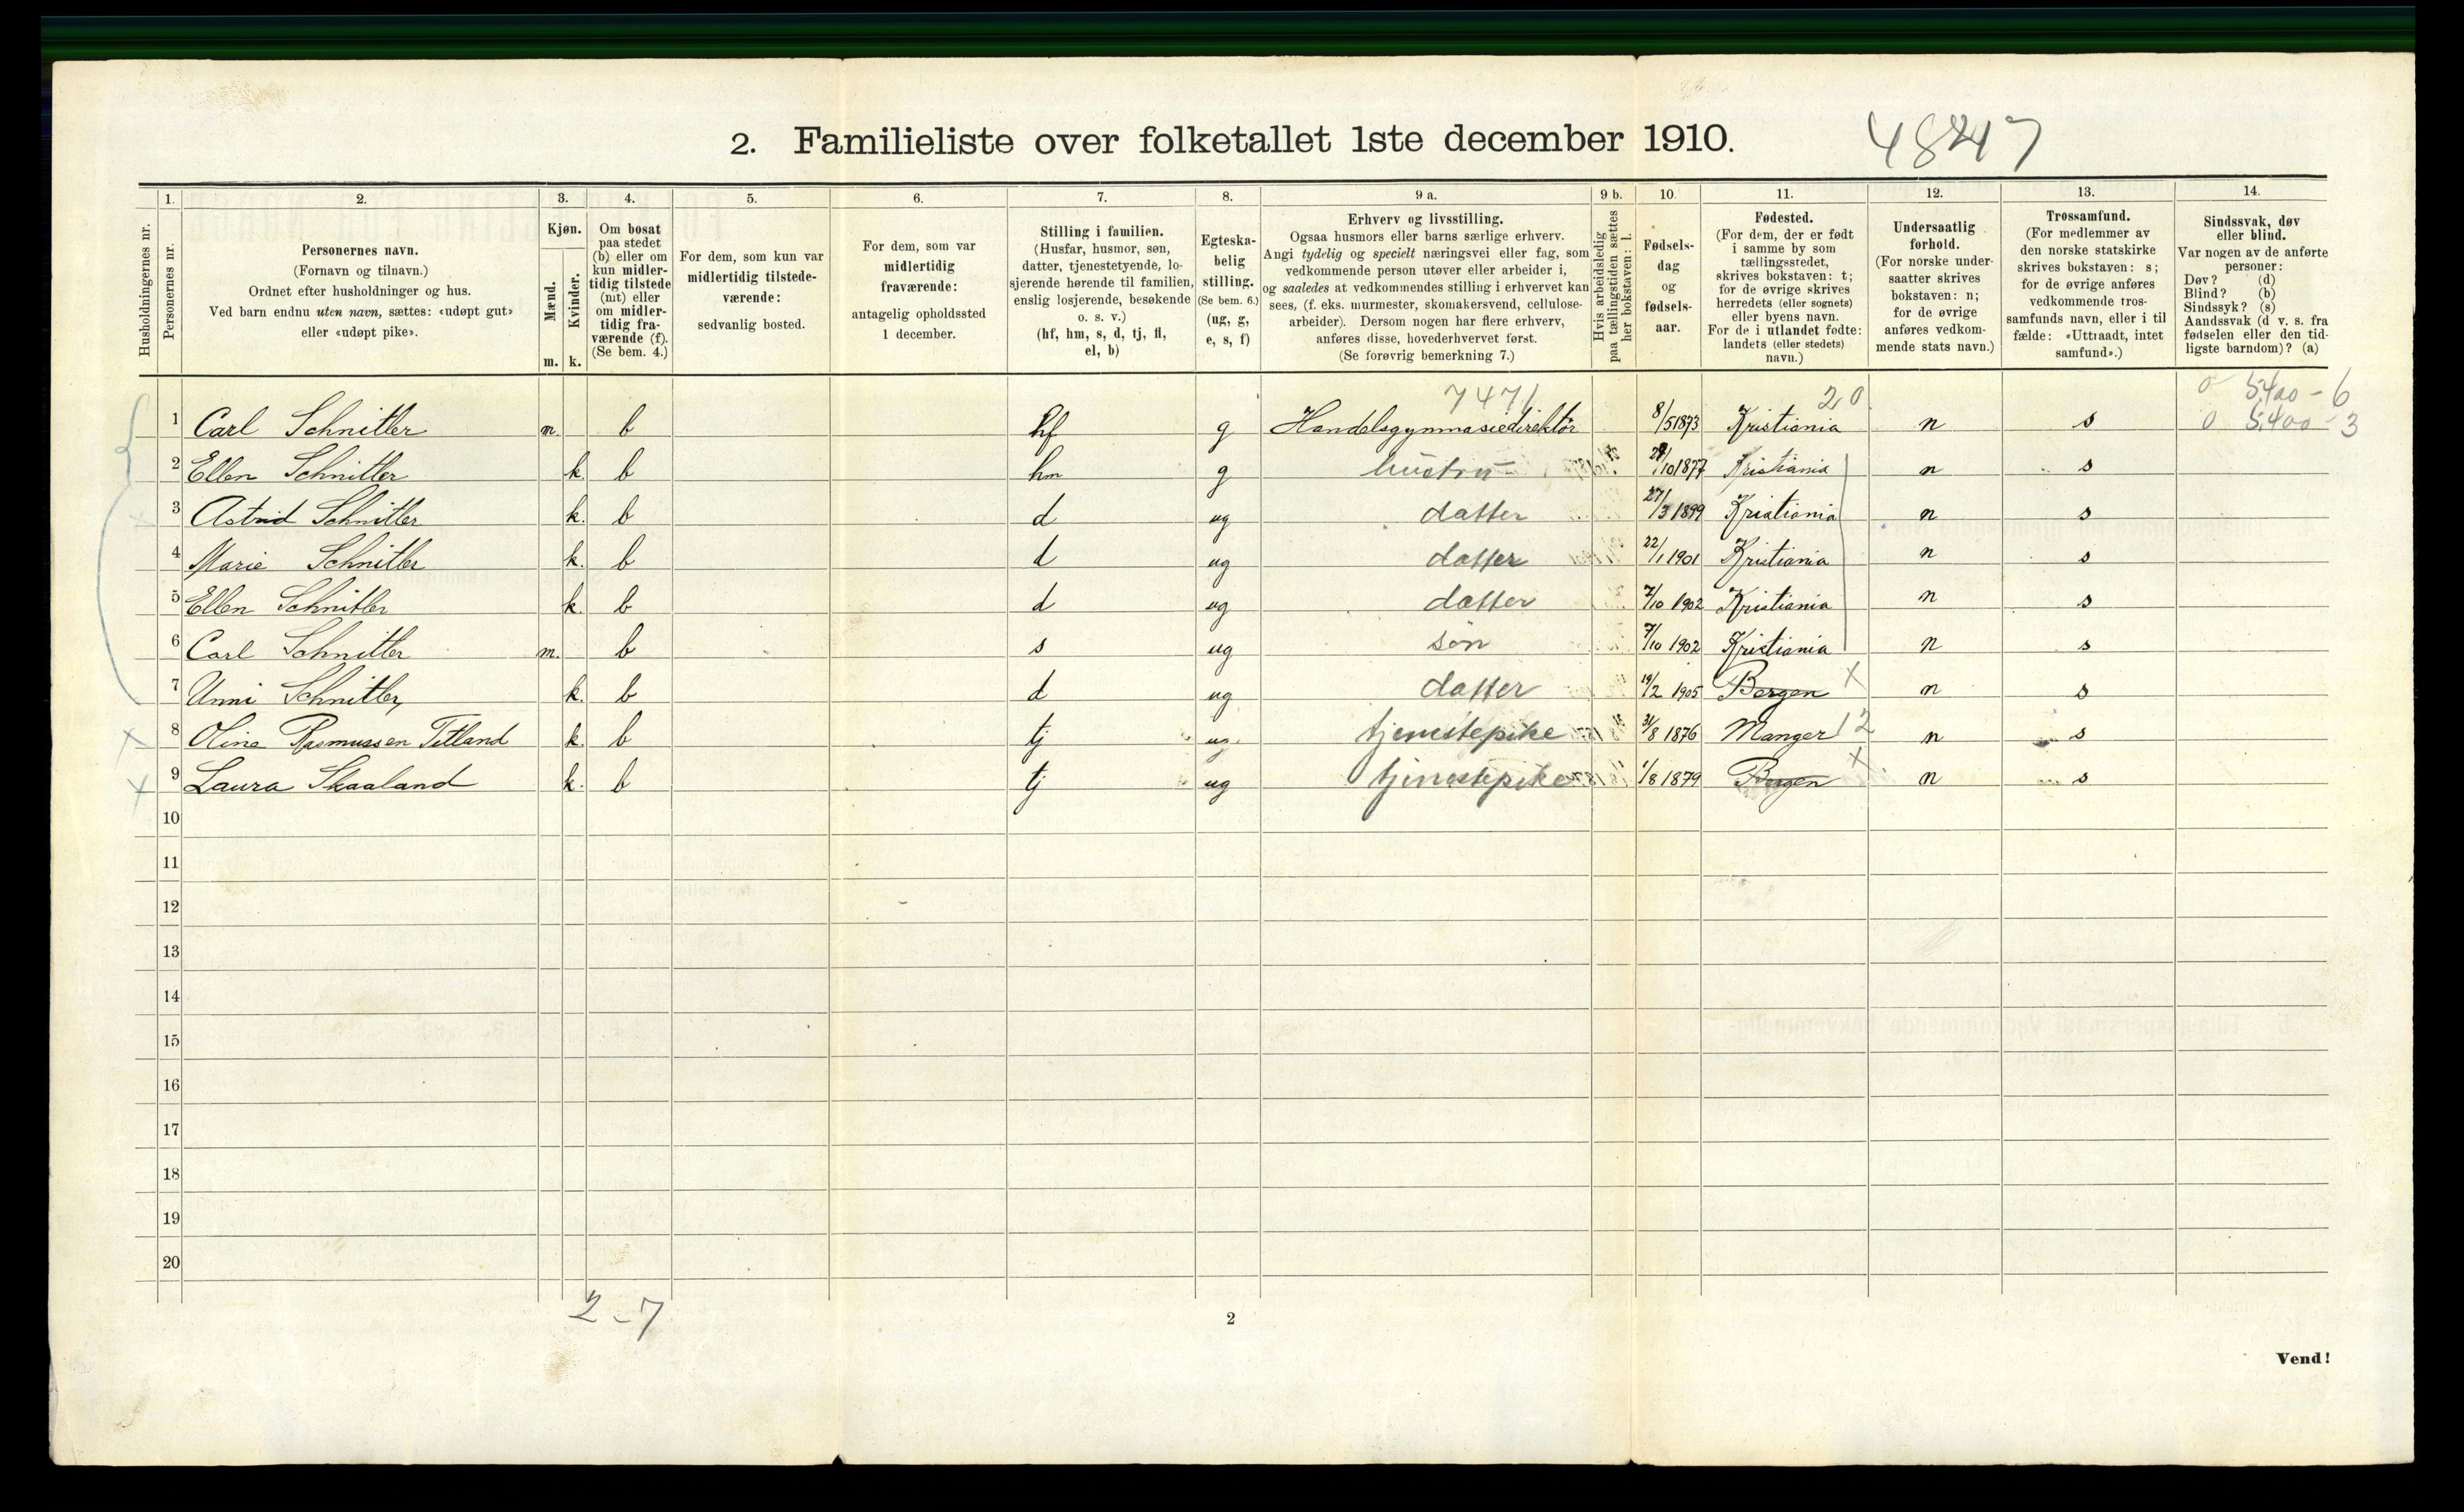 2. Familieliste over folketallet 1ste december 1910.
48247
Husholdningernes nr.
1. Personernes nr.
2. Personernes navn. (Fornavn og tilnavn.) Ordnet efter husholdninger og hus. Ved barn endnu uten navn, sættes: «udøpt gut» eller «udøpt pike».
3. Kjøn. Mænd. m. Kvinder. k.
4. Om bosat paa stedet (b) eller om kun midlertidig tilstede (mt) eller om midlertidig fraværende (f). (Se bem. 4.)
5. For dem, som kun var midlertidig tilstedeværende: sedvanlig bosted.
6. For dem, som var midlertidig fraværende: antagelig opholdssted 1 december.
7. Stilling i familien. (Husfar, husmor, søn, datter, tjenestetyende, losjerende hørende til familien, enslig losjerende, besøkende o. s. v.) (hf, hm, s, d, tj, fl, el, b)
8. Egteskabelig stilling. (Se bem. 6.) (ug, g, e, s, f)
9 a. Erhverv og livsstilling. Ogsaa husmors eller barns særlige erhverv. Angi tydelig og specielt næringsvei eller fag, som vedkommende person utøver eller arbeider i, og saaledes at vedkommendes stilling i erhvervet kan sees, (f. eks. murmester, skomakersvend, cellulosearbeider). Dersom nogen har flere erhverv, anføres disse, hovederhvervet først. (Se forøvrig bemerkning 7.)
9 b. Hvis arbeidsledig paa tællingstiden sættes her bokstaven: l.
10. Fødselsdag og fødselsaar.
11. Fødested. (For dem, der er født i samme by som tællingsstedet, skrives bokstaven: t; for de øvrige skrives herredets (eller sognets) eller byens navn. For de i utlandet fødte: landets (eller stedets) navn.)
12. Undersaatlig forhold. (For norske undersaatter skrives bokstaven: n; for de øvrige anføres vedkommende stats navn.)
13. Trossamfund. (For medlemmer av den norske statskirke skrives bokstaven: s; for de øvrige anføres vedkommende trossamfunds navn, eller i tilfælde: «Uttraadt, intet samfund».)
14. Sindssvak, døv eller blind. Var nogen av de anførte personer: Døv? (d) Blind? (b) Sindssyk? (s) Aandssvak (d v. s. fra fødselen eller den tidligste barndom)? (a)
7471 20 0 5400 - 6
1 Carl Schnitler m. b hf g Handelsgymnasiedirektör 8/5 1873 Kristiania n s 0 5400 - 3
2 Ellen Schnitler k. b hm g hustru 29/10 1877 Kristiania n s
3 Astrid Schnitler k. b d ug datter 27/3 1899 Kristiania n s
4 Marie Schnitler k. b d ug datter 22/1 1901 Kristiania n s
5 Ellen Schnitler k. b d ug datter 7/10 1902 Kristiania n s
6 Carl Schnitler m. b s ug søn 7/10 1902 Kristiania n s
7 Unni Schnitler, k. b d ug datter 19/2 1905 Bergen x n s
x 8 Oline Rasmussen Titland k. b tj ug tjenestepike 31/8 1876 Manger 12 n s
x 9 Laura Skaaland k. b tj ug tjenestepike 1/8 1879 Bergen x n s
10
11
12
13
14
15
16
17
18
19
20
2 - 7
2
Vend!